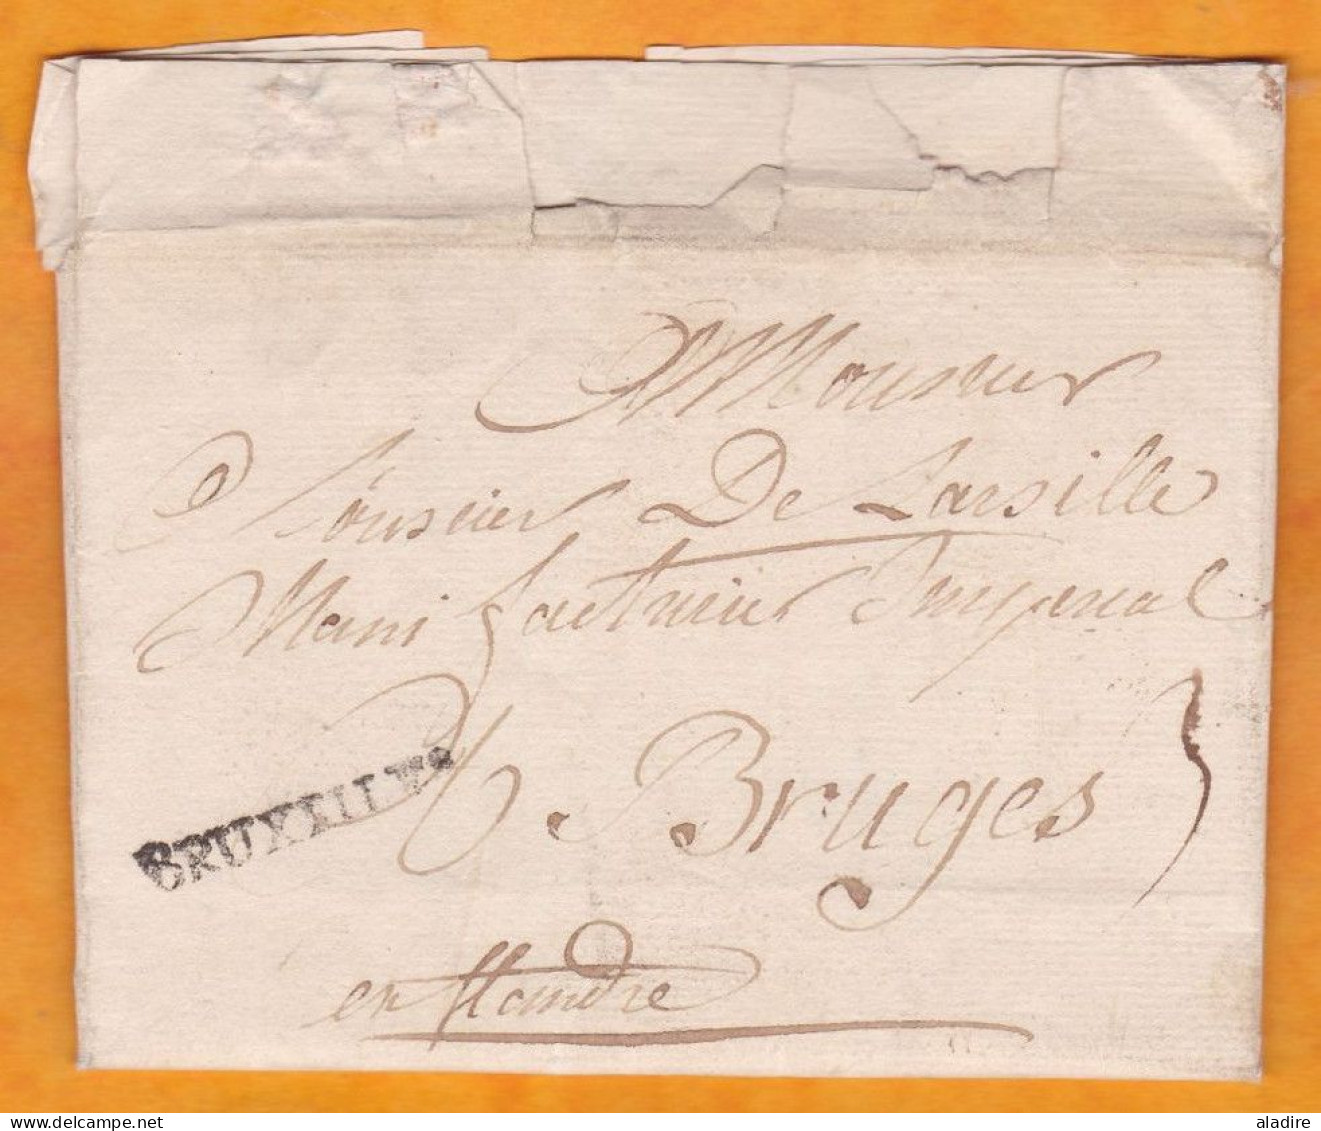 Monsieur
Monsieur De Larsille
Manifactuiier Imperial
BRUXELLES
à Bruges
en flandre
www.delcampe.net
aladire